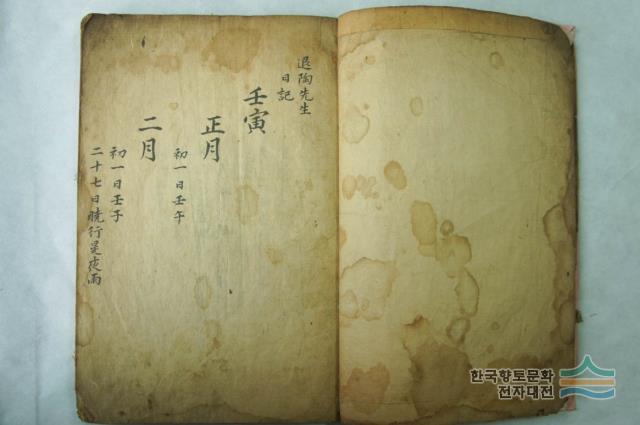 退陶先生
日記
壬寅
正月
初一日壬午
二月
初一日壬子
二十七日曉行是夜雨
한국향토문화
전자대전